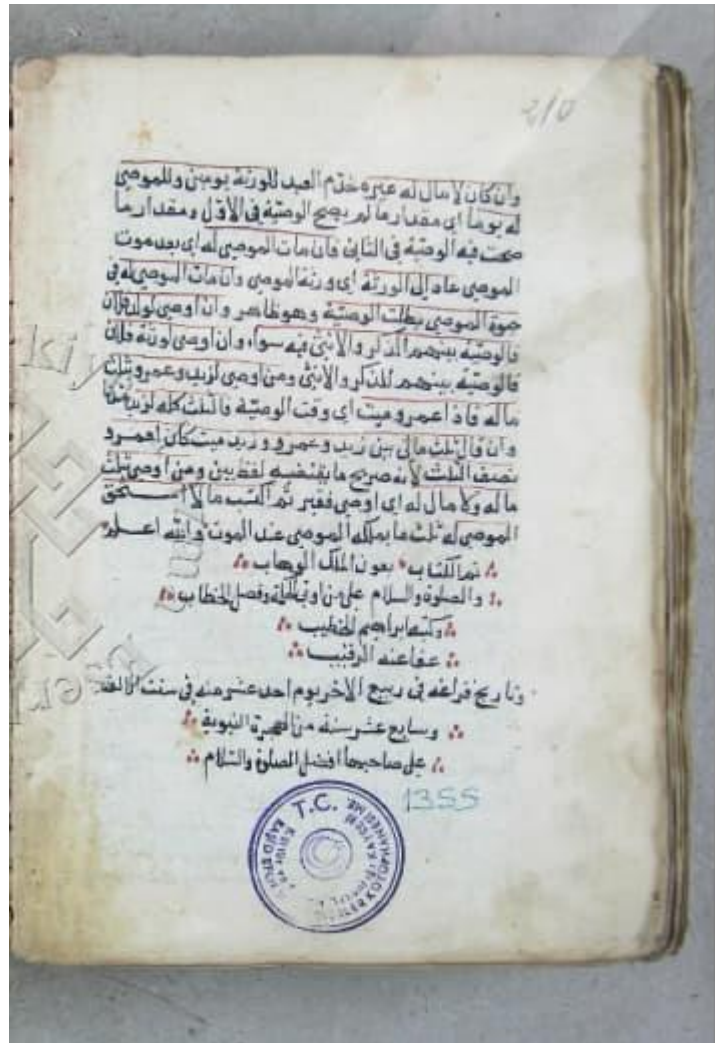 210
وان كان لا مال له غيره خدم العبد للورثة يومين وللموصى
له يوما اى مقدار ما لم يصح الوصية فى الاول ومقدار ما
صحت فيه الوصية فى الثانى فان مات الموصى له اى بعد موت
الموصى عاد الى الورثة اى ورثة الموصى وان مات الموصى له فى
حيوة الموصى بطلت الوصية وهو ظاهر وان اوصى لولد فلان
فالوصية بينهم الذكر والانثى فيه سواء وان اوصى لورثة فلان
فالوصية بينهم للذكر والانثى ومن اوصى لزيد وعمرو بثلث
ماله فاذا عمرو ميت اى وقت الوصية فالثلث كله لزيد
وان قال ثلث مالى بين زيد وعمرو وزيد ميت كان لعمرو
نصف الثلث لانه صريح ما يقتضيه لفظ بين ومن اوصى بثلث
ماله ولا مال له اى اوصى فقير ثم اكتسب مالا استحق
الموصى له ثلث ما يملكه الموصى عند الموت والله اعلم
تم الكتاب بعون الملك الوهاب
والصلوة والسلام على من اوتى الحكمة وفصل الخطاب
وكتبه ابراهيم الخطيب
عفا عنه الرقيب
وتاريخ فراغه فى ربيع الاخر يوم احد عشر منه فى سنت الالف
وسابع عشر سنة من الهجرة النبوية
على صاحبها افضل الصلوة والسلام
1355
T.C.